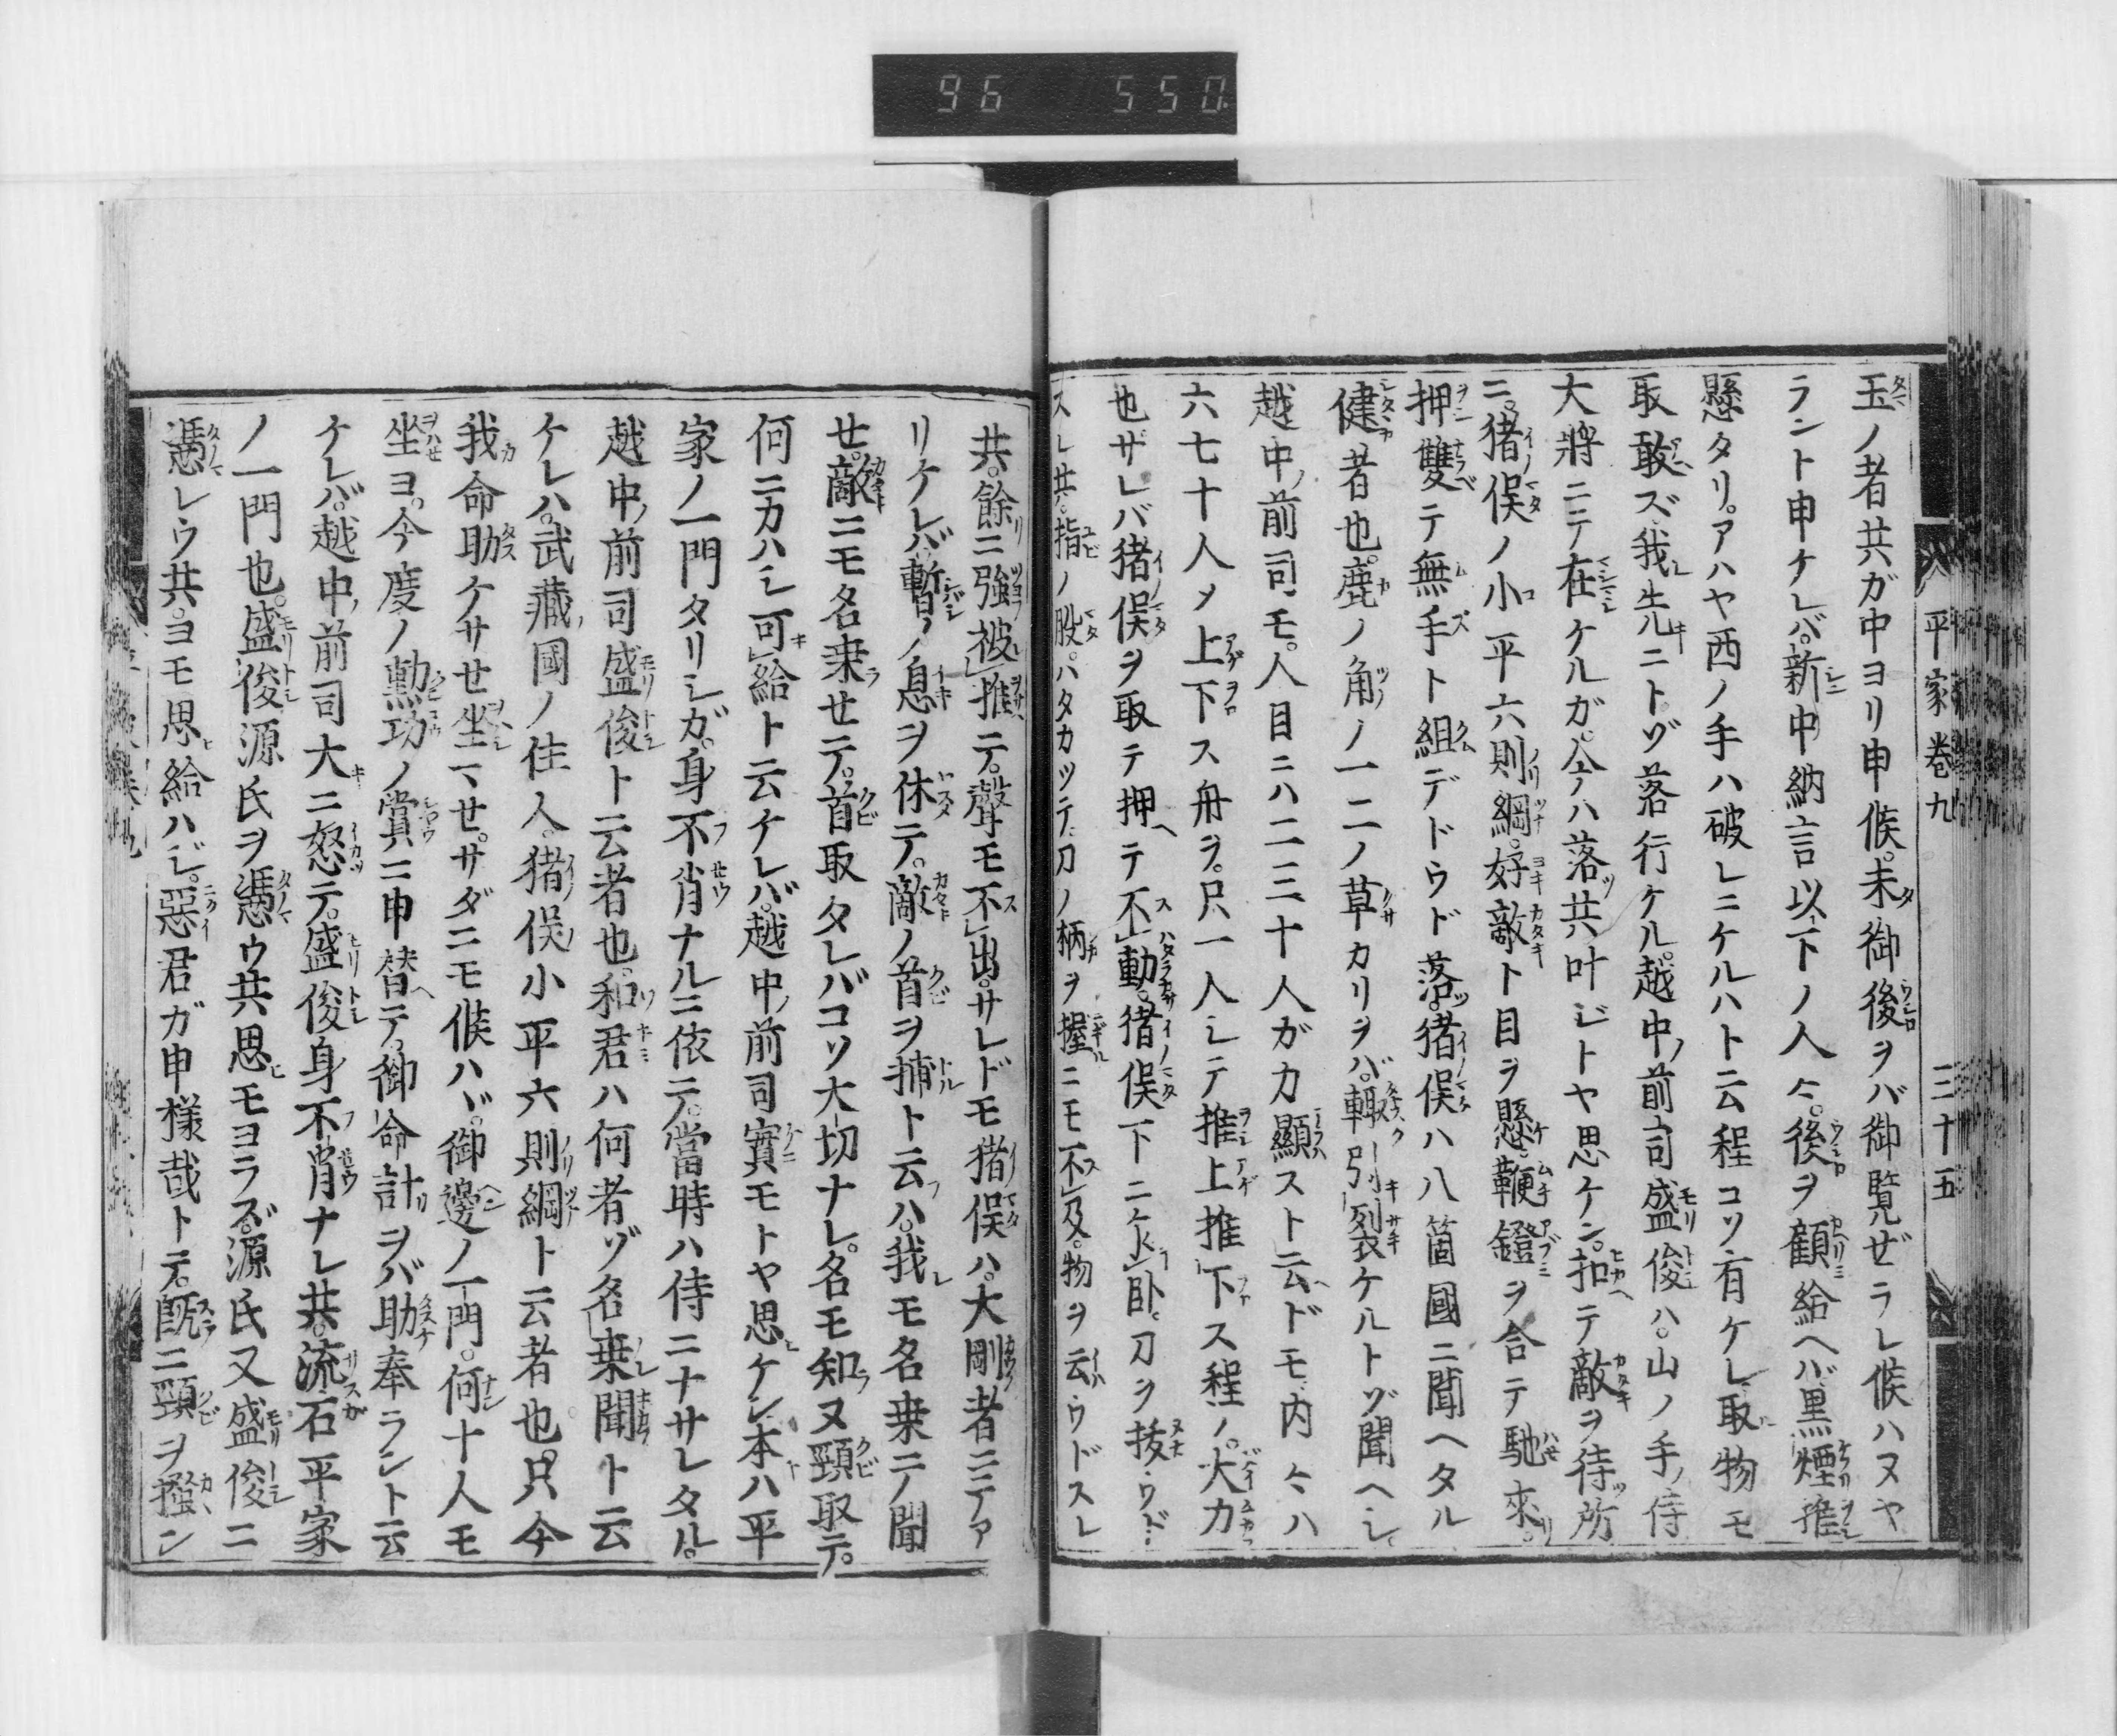 96 550
平家巻九 三十五
玉ノ者共ガ中ヨリ申候。未御後ヲバ御覧ゼラレ候ハヌヤ
ラント申ケレバ。新中納言以下ノ人々。後ヲ顧給ヘバ黒煙推
懸タリ。アハヤ西ノ手ハ破レニケルハト云程コソ有ケレ取物モ
取敢ズ我先ニトゾ落行ケル。越中ノ前司盛俊ハ。山ノ手ノ侍
大將ニテ在ケルガ。今ハ落共叶ジトヤ思ケン。扣テ敵ヲ待所
ニ。猪俣ノ小平六則綱。好敵ト目ヲ懸。鞭鐙ヲ合テ馳來。
押雙テ無手ト組デドウド落。猪俣ハ八箇國ニ聞ヘタル
健者也。鹿ノ角ノ一二ノ草カリヲバ。輙引裂ケルトゾ聞ヘシ。
越中ノ前司モ。人目ニハ二三十人ガ力顯スト云ヘドモ内々ハ
六七十人〆上下ス舟ヲ。只一人シテ推上推下ス程ノ。大力
也サレバ猪俣ヲ取テ押ヘテ不動。猪俣下ニ卧。刀ヲ抜ウド
スレ共。指ノ股。ハタカツテ刀ノ柄ヲ握ニモ不及。物ヲ云ウドスレ
共。餘ニ強被推テ。聲モ不出。サレドモ猪俣ハ。大剛者ニテア
リケレバ暫ノ息ヲ休テ。敵ノ首ヲ捕ト云ハ。我モ名乗ニノ聞
せ。敵ニモ名乗せテ。首取タレバコソ大切ナレ。名モ知ヌ頸取テ。
何ニカハシ可給ト云ケレバ。越中ノ前司實モトヤ思ケン本ハ平
家ノ一門タリシガ。身不肖ナルニ依テ。當時ハ侍ニナサレタル。
越中ノ前司盛俊ト云者也。和君ハ何者ゾ名乗聞ト云
ケレハ。武藏國ノ住人。猪俣小平六則綱ト云者也。只今
我命助ケサせ坐マせ。サダニモ候ハヾ。御邊ノ一門。何十人モ
坐ヨ。今度ノ勳功ノ賞ニ申替テ。御命計ヲバ助奉ラント云
ケレバ。越中ノ前司大ニ怒テ。盛俊身不肖ナレ共。流石平家
ノ一門也。盛俊源氏ヲ憑ウ共思モヨラズ。源氏又盛俊ニ
憑レウ共。ヨモ思給ハジ。惡君ガ申様哉トテ。既ニ頸ヲ掻ン